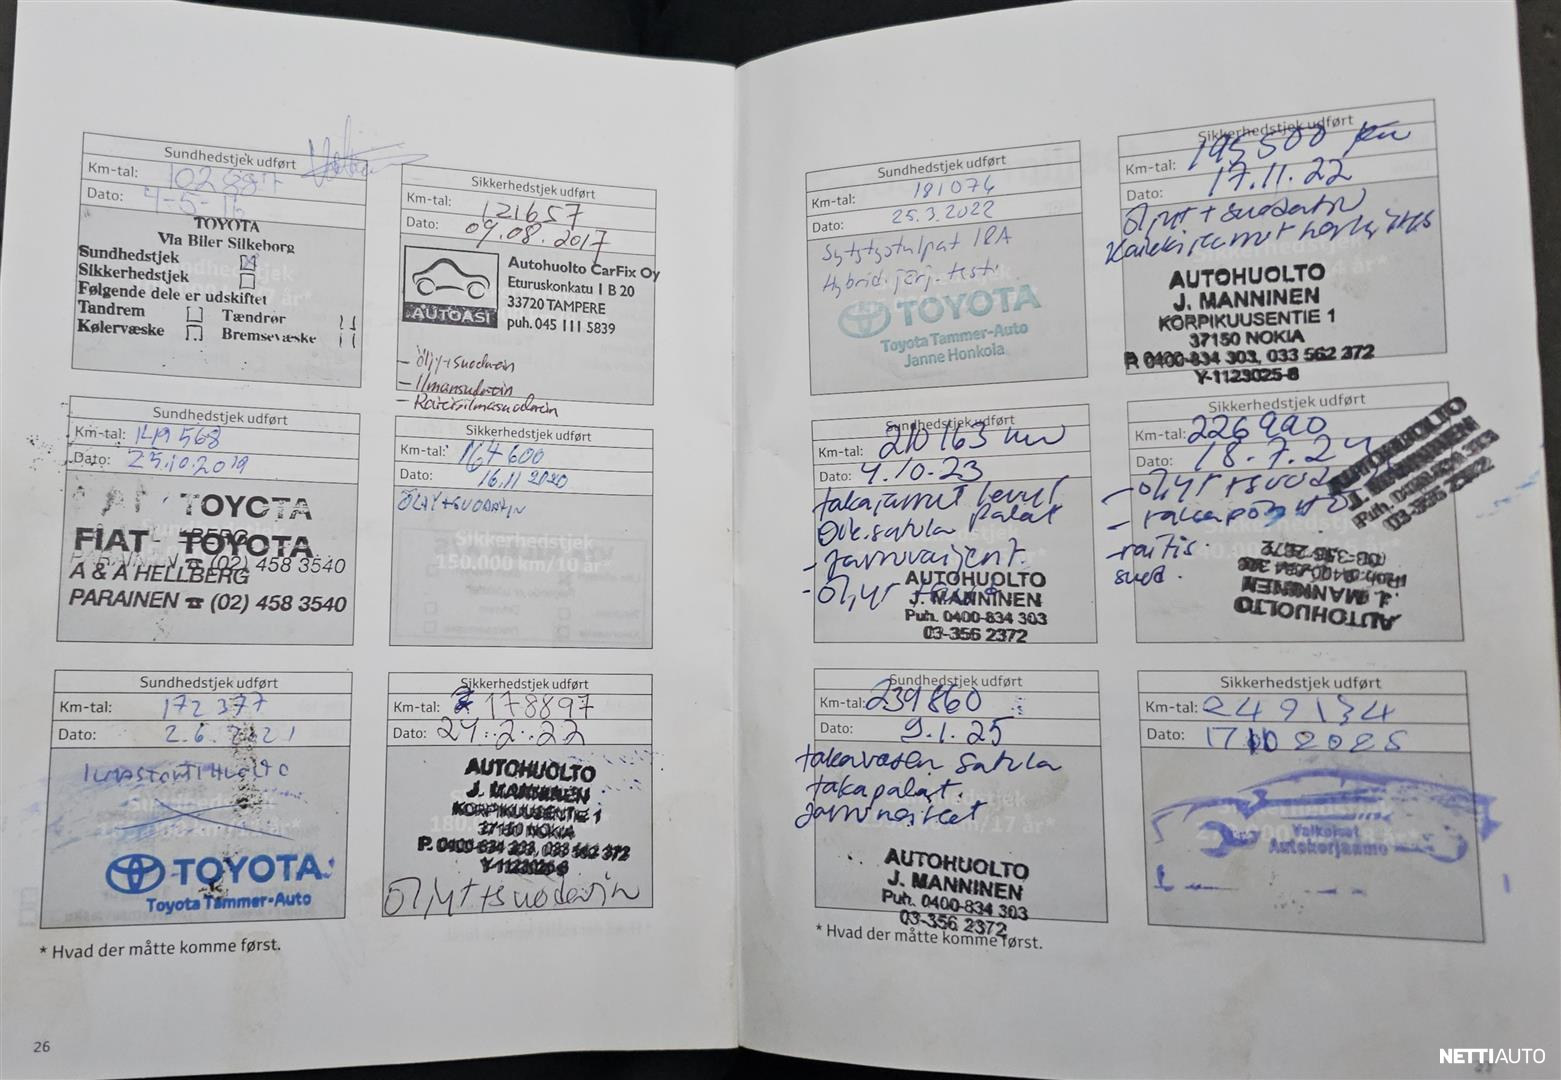 Sundhedstjek udført
Km-tal:
Dato: 4-5-16
TOYOTA
Via Biler Silkeborg
Sundhedstjek
Sikkerhedstjek
Følgende dele er udskiftet
Tandrem Tændrør
Kølervæske Bremsevæske
Sikkerhedstjek udført
Km-tal: 121657
Dato: 09.08.2017
AUTOASI
Autohuolto CarFix Oy
Eturuskonkatu 1 B 20
33720 TAMPERE
puh. 045 111 5839
- öljy+suodatin
- Ilmansuodatin
- Raitisilmasuodatin
Sundhedstjek udført
Km-tal: 149568
Dato: 25.10.2019
TOYOTA
FIAT - TOYOTA
BERG
PARAINEN ☎ (02) 458 3540
A & A HELLBERG
PARAINEN ☎ (02) 458 3540
Sikkerhedstjek udført
Km-tal: 164600
Dato: 16.11 2020
ÖLJY+SUODATIN
Sikkerhedstjek
150.000 km/10 år*
Sundhedstjek udført
Km-tal: 172377
Dato: 2.6.2021
ILMASTOINTIHUOLTO
TOYOTA
Toyota Tammer-Auto
Sikkerhedstjek udført
Km-tal: 178897
Dato: 24.2.22
AUTOHUOLTO
J. MANNINEN
KORPIKUUSENTIE 1
37150 NOKIA
P. 0400-834 303, 033 562 372
Y-1123025-8
Öljyt+suodatin
* Hvad der måtte komme først.
26
Sundhedstjek udført
Km-tal: 181074
Dato: 25.3.2022
Sytytystulpat IRA
Hybridijärj. testi
TOYOTA
Toyota Tammer-Auto
Janne Honkola
Sikkerhedstjek udført
Km-tal: 195500 km
Dato: 17.11.22
Öljyt+suodatin
AUTOHUOLTO
J. MANNINEN
KORPIKUUSENTIE 1
37150 NOKIA
P. 0400-834 303, 033 562 372
Y-1123025-8
Sundhedstjek udført
Km-tal: 210163 km
Dato: 4.10.23
takajarrut levyt
Oik.satula palat
- Jarruvaijerit.
AUTOHUOLTO
J. MANNINEN
Puh. 0400-834 303
03-356 2372
Sikkerhedstjek udført
Km-tal: 226990
Dato: 18.7.24
- öljyt+suod
- raitis.
suod.
AUTOHUOLTO
J. MANNINEN
Puh. 0400-834 303
03-356 2372
AUTOHUOLTO
J. MANNINEN
Sundhedstjek udført
Km-tal: 239860
Dato: 9.1.25
takavasen satula
takapalat.
Jarrunesteet
AUTOHUOLTO
J. MANNINEN
Puh. 0400-834 303
03-356 2372
Sikkerhedstjek udført
Km-tal: 249134
Dato: 17 10 2025
Valkoiset
Autokorjaamo
* Hvad der måtte komme først.
NETTIAUTO